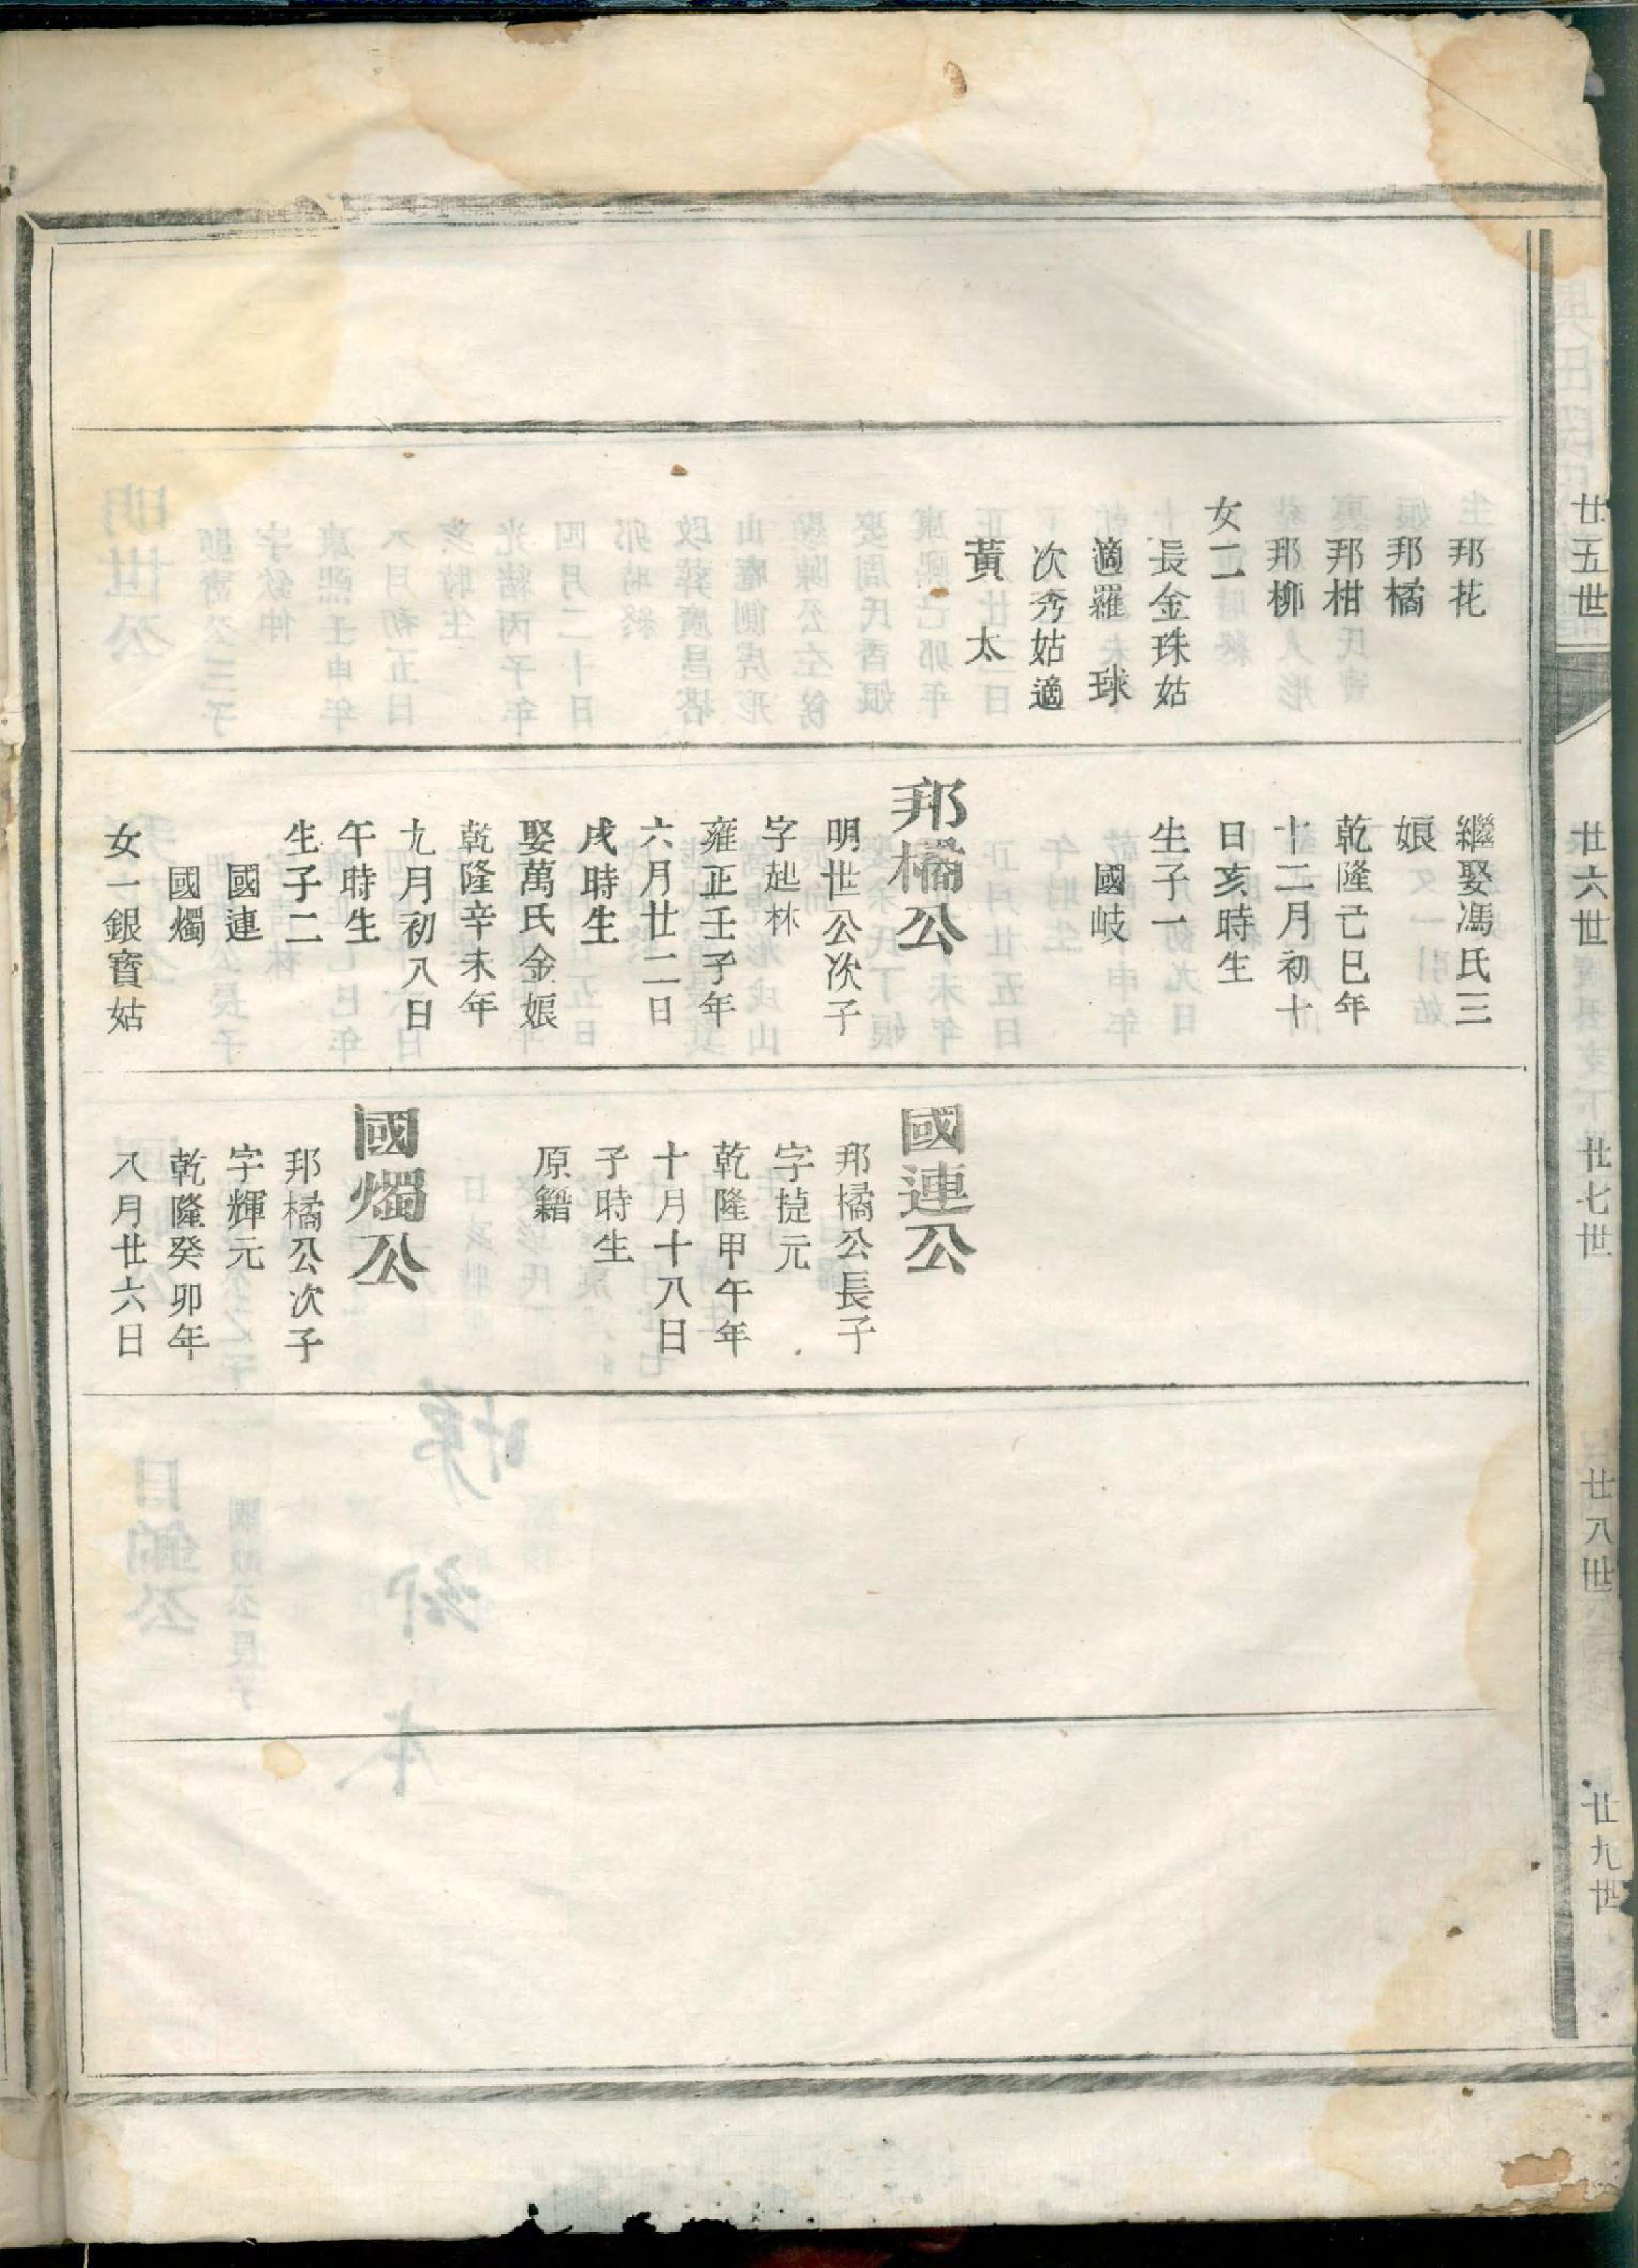 廿五世
廿六世
廿七世
廿八世
廿九世
邦花
邦橘
邦柑
邦柳
女二
長金珠姑
適羅 球
次秀姑適
黃 太
繼娶馮氏三
娘
乾隆己巳年
十二月初十
日亥時生
生子一
國岐
邦橘公
明世公次子
字起林
雍正壬子年
六月廿二日
戌時生
娶萬氏金娘
乾隆辛未年
九月初八日
午時生
生子二
國連
國燭
女一銀寶姑
國連公
邦橘公長子
字㨗元
乾隆甲午年
十月十八日
子時生
原籍
國燭公
邦橘公次子
字輝元
乾隆癸卯年
八月廿六日